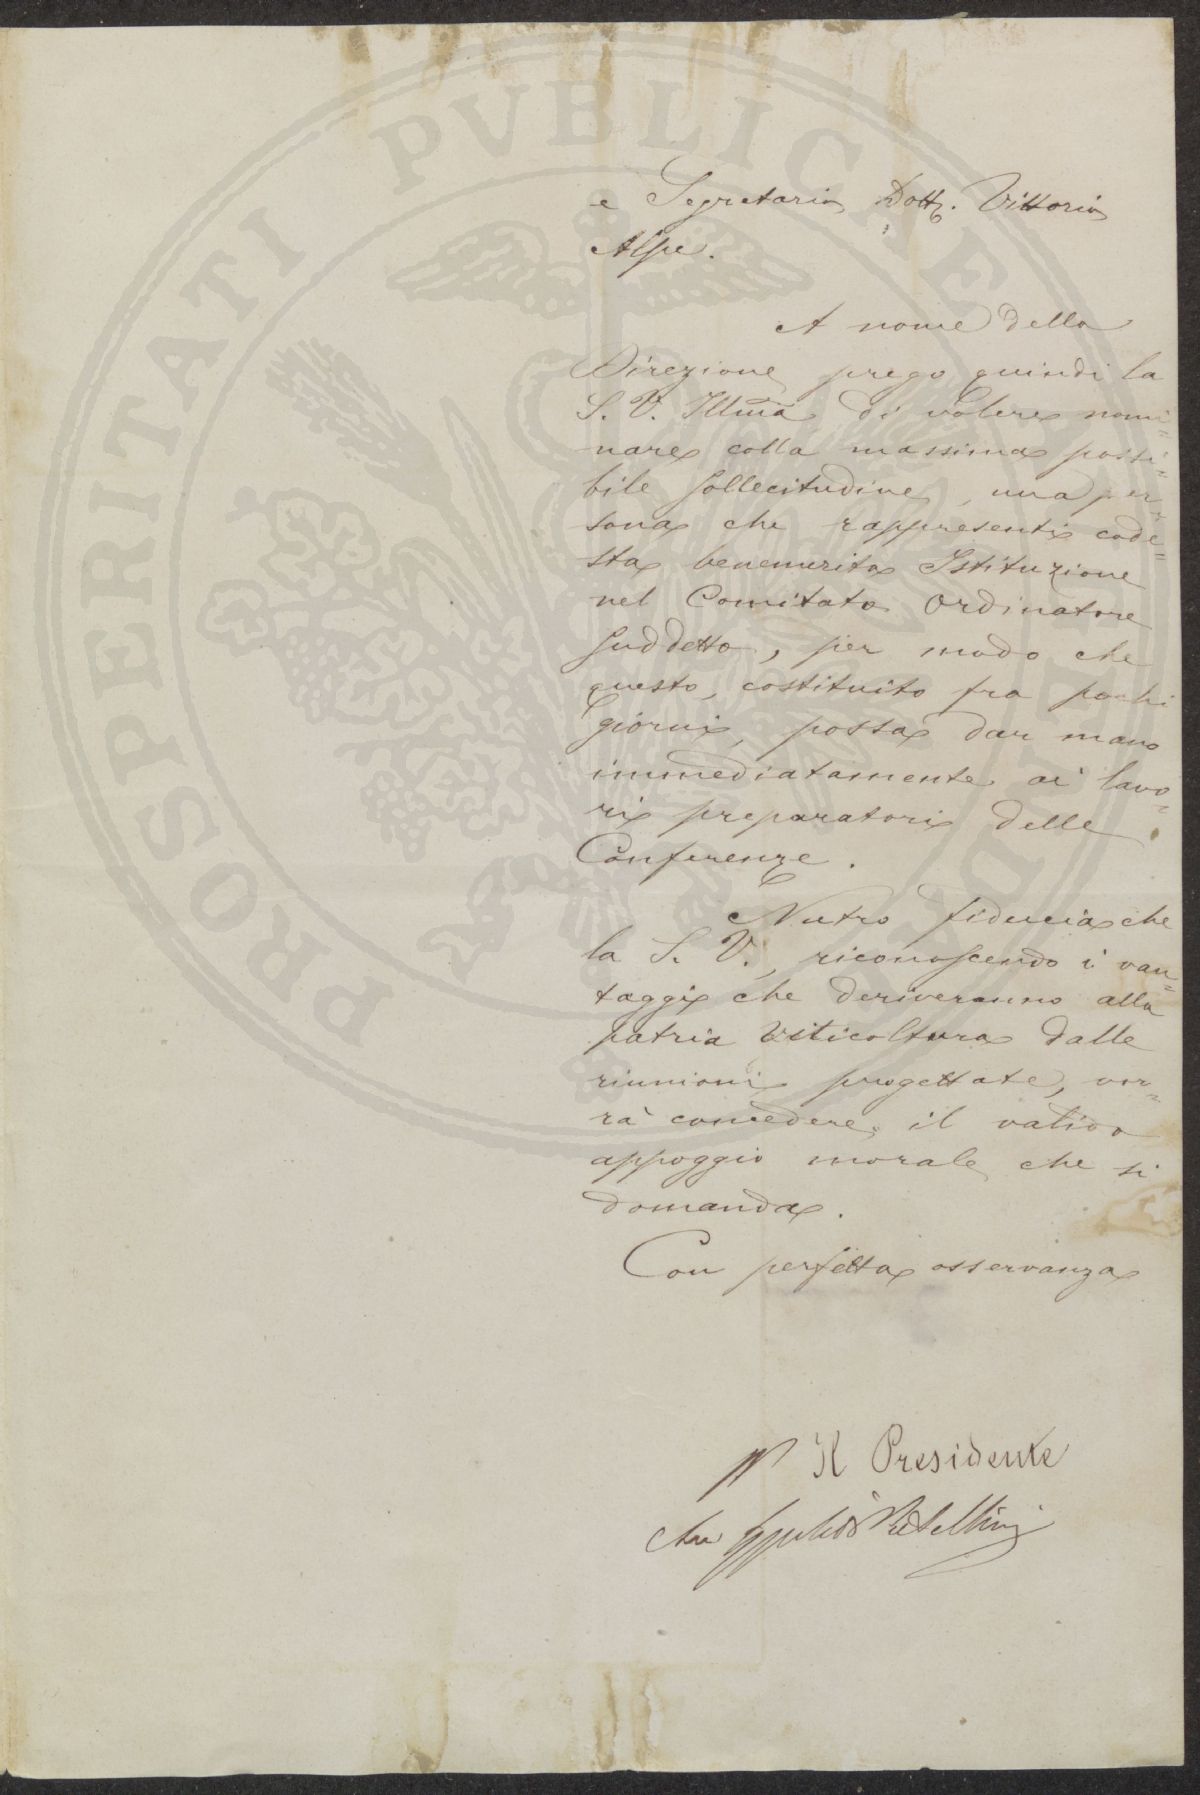 e Segretario Dott. Vittorio
Alpe.
A nome della
Direzione prego quindi la
S. V. Illma di volere nomi=
nare colla massima possi=
bile sollecitudine, una per=
sona che rappresenti code=
sta benemerita Istituzione
nel Comitato Ordinatore
suddetto, per modo che
questo, costituito fra pochi
giorni, possa dar mano
immediatamente ai lavo=
ri preparatori delle
Conferenze.
Nutro fiducia che
la S. V., riconoscendo i van=
taggi che deriveranno alla
patria viticoltura dalle
riunioni progettate, vor=
rà concedere il valido
appoggio morale che si
domanda.
Con perfetta osservanza
Il Presidente
PROSPERITATI PVBLICAE